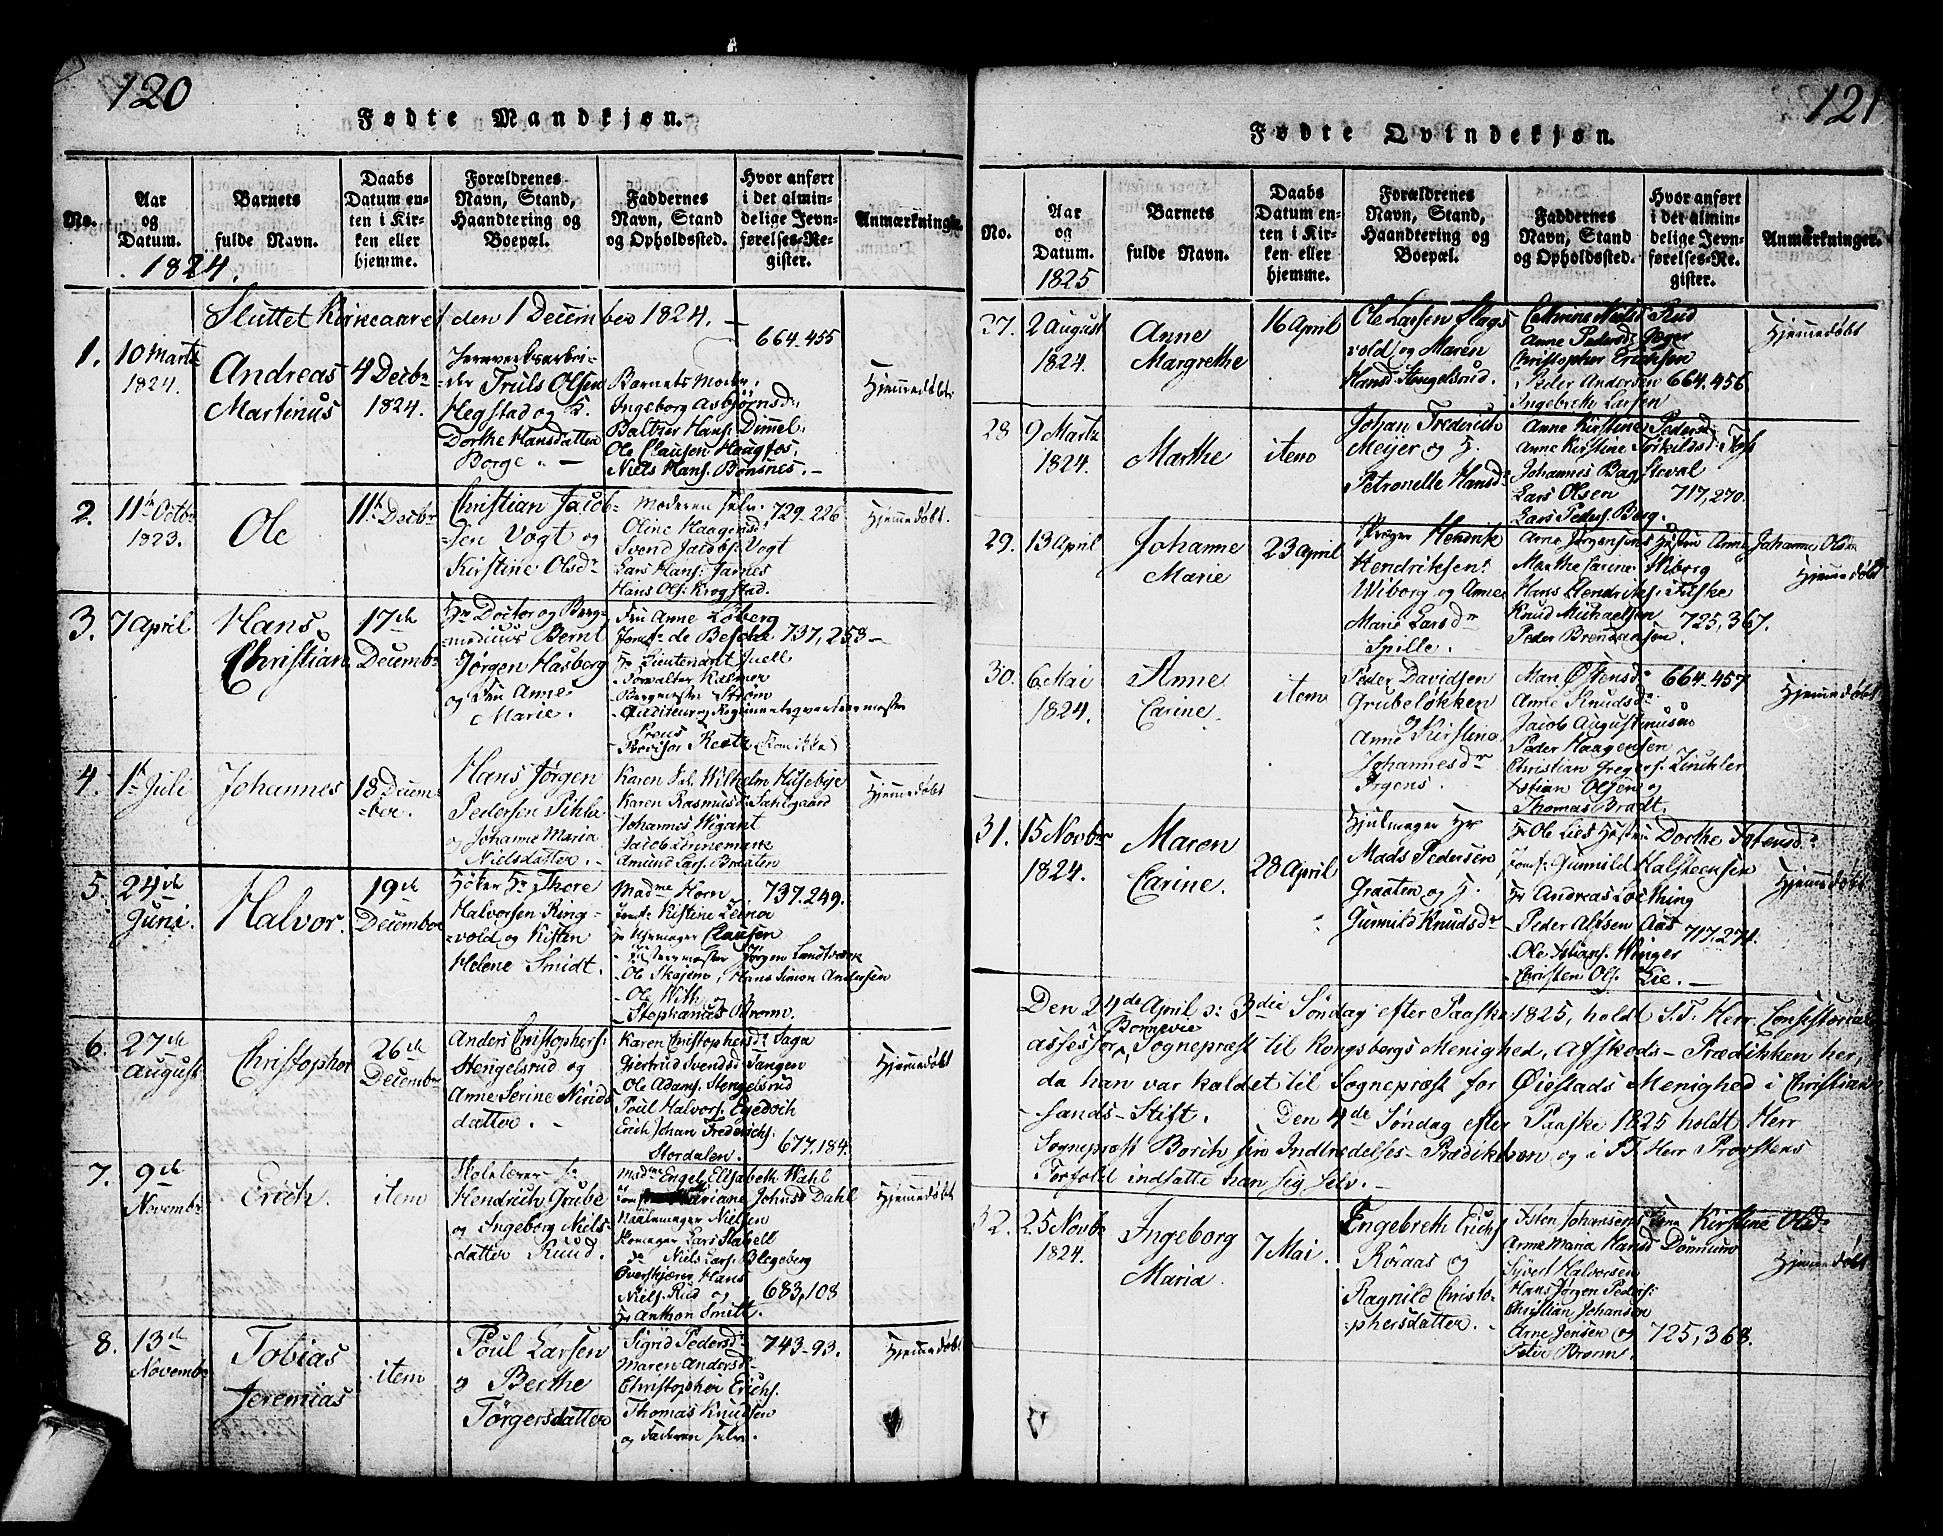 120
Fødte Mandkjøn.
No.
Aar
og
Datum.
1824.
Barnets
fulde Navn.
Daabs
Datum en-
ten i Kir-
ken eller
hjemme.
Forældrenes
Navn, Stand,
Haandtering og
Boepæl.
Faddernes
Navn, Stand
og Opholdssted.
Hvor anført
i det almin-
delige Jevn-
førelses-Re-
gister.
Anmærkninger.
Sluttet Kirkeaaret den 1 December 1824. –
1.
10 Martz
1824.
Andreas
Martinus
4 Decbr
1824.
Jernverksarbei-
der Truls Olsen
Hegstad og K.
Dorthe Hansdatter
Borge. –
Barnets Moder,
Ingeborg Asbjørnsdr
Baltzer Hans. Dimel
Ole Clausen Haugfos,
Niels Hans. Bønsnes. –
664-455
Hjemmedøbt
2.
11te Octbr
1823.
Ole
11te Decbr
Christian Jacob-
sen Vogt og
Kirstine Olsdr
Moderen selv,
Oline Haagensdr
Svend Jacobs. Vogt
Lars Hans. Jarnes
Hans Ols. Krogstad.
729-226
Hjemmedøbt.
3.
7 April
Hans
Christian
17de
Decembr
Hr Doctor og Berg-
medicus Bernt
Jørgen Hasberg
og Fru Anne
Marie.
Fru Anne Løberg
Jomf: de Besche
Hr Lieutenant Juell
Forvalter Rasmer
Bergmester Strøm
Auditeur og Regimentsqvarteermester
Prøus
Provisor Kestz
737, 253 –
4.
1te Juli
Johannes
18 Decem-
ber.
Hans Jørgen
Pedersen Pihla
og Johanne Maria
Nielsdatter. –
Karen Joh. Wilhelm Husebye
Karen Rasmusdr Sahlgaard
Johannes Wigant
Jacob Linnemann
Amund Lars. Braaten
Hjemmedøbt
5.
24de
Juni.
Halvor.
19de
December
Høker Hr Thore
Halvorsen Ring-
vold og Kisten
Helene Smidt.
Madme Horn
Jomf: Kistine Lenna
Hr Uhrmager Clausen
Hyttemester Jørgen Landtværk
Ole Skajem, Hans Simon Andersen
Ole With og
Stephanus Broms.
737.249.
6.
27de
August
Christopher
26de
Decembr
Anders Christophers.
Stengelsrud og
Anne Serine Nirids
datter. –
Karen Christophersdr Saga
Giertrud Svendsd Tangen
Ole Adams. Stengelsrud
Poul Halvors. Egedoch
Erich Johan Frederichs.
Stordalen.
677,184.
Hjemmedøbt
7.
9de
Novembr
Erich.
item
Skolelærer Hr
Hendrich Grube
og Ingeborg Niels-
datter Ruud.
Madme Engel Elisabeth Wahl
Jomf Mariane Johnsd Dahl
Naalemager Nielsen
Skomager Lars Stabell
do Niels Lars. Blegeberg
Overskjærer Hans
Niels. Rud og
Hr Anthon Smitt.
683,108
Hjemmedøbt
8.
13de
Novembr
Tobias
Jeremias
item
Poul Larsen
og Berthe
Törgersdatter
Sigrid Pedersdr
Maren Andersdr
Christopher Erichs.
Thomas Knudsen
og Faderen selv.
743-93.
Hjemmedøbt
121
Fødte Qvindekjøn.
No.
Aar
og
Datum.
1825
Barnets
fulde Navn.
Daabs
Datum en-
ten i Kir-
ken eller
hjemme.
Forældrenes
Navn, Stand,
Haandtering og
Boepæl.
Faddernes
Navn, Stand
og Opholdssted.
Hvor anført
i det almin-
delige Jevn-
førelses-Re-
gister.
Anmærkninger.
27.
2 August
1824.
Anne
Margrethe
16 April
Ole Larsen Skogs
vold og Maren
Hansd Stengelsrud.
Cathrine Nilsd Rud
Anne Pedersd Gager
Christopher Erichsen
Peder Andersen
Ingebreth Larsen
664.456
Hjemmedøbt
28
9 Martz
1824.
Marthe
iteno
Johan Frederich
Meijer og H.
Petronelle Hansdr
Anne Kirstine Pedersd.
Anne Kirstine Torkildsd: Foss
Johannes Bag Stoval
Lars Olsen
Lars Peders. Berg.
717,270.
29.
13 April
Johanne
Marie
23 April
Pruger Hendrik
Hendriksen
Wiborg og Anne
Marie Larsdr
Spille.
Arne Jørgensens Høstru Anne Johanne Olsdr
Marthe Larine Wiborg
Hans Hendriks. Fiske
Knud Michaelsen
Peder Brendsensen.
725,367.
Hjemmedøbt
30.
6 Mai
1824.
Anne
Carine.
item
Peder Davidsen
Grubeløkken
og
Anne Kirstine
Johannesdr
Irgens.
Mari Østensdr
Anne Knudsdr
Jacob Augustinusen
Peder Haagensen
Christian Gregers. Zinchler
Estian Olsen og
Thomas Bradt.
664-457
Hjemmedøbt
31.
15 Novbr
1824.
Maren
Carine.
28 April
Hjulmager Hr
Mads Pedersen
Graaten og H.
Gunnild Knudsdr
Hr Ole Lies Høstru Dorthe Totensdr
Jomf: Gunnild Halsteensen
Hr Andreas Loething
Peder Alfsen Aas
Ole Johans. Winger
Christen Ols. Lie. –
717,271.
Hjemmedøbt
Den 24de April ɔ: 3die Søndag efter Paaske 1825, holdt S.T. Herr Consistorial
assessor Bonnevie, Sognepræst til Kongsbergs Menighed, Afskeds-Prædikken her,
da han var kaldet til Sognepræst for Øiestads Menighed i Christian-
sands-Stift. Den 4de Søndag efter Paaske 1825 holdt Herr
Sognepræst Borch sin Indtrædelses-Prædikken og i S.T. Herr Provstens
Forfald indsatte han sig selv. –
32.
25 Novbr
1824.
Ingeborg
Maria.
7 Mai.
Engebreth Erichs.
Röraas og
Ragnild Christo-
phersdatter.
Osten Johansens Kone Kirstine Olsdr
Anne Maria Hansd Dömmum
Syvert Halvorsen
Hans Jørgen Peders.
Christian Johansen
Arne Jensen og
Peter Broms.
725,368.
Hjemmedøbt